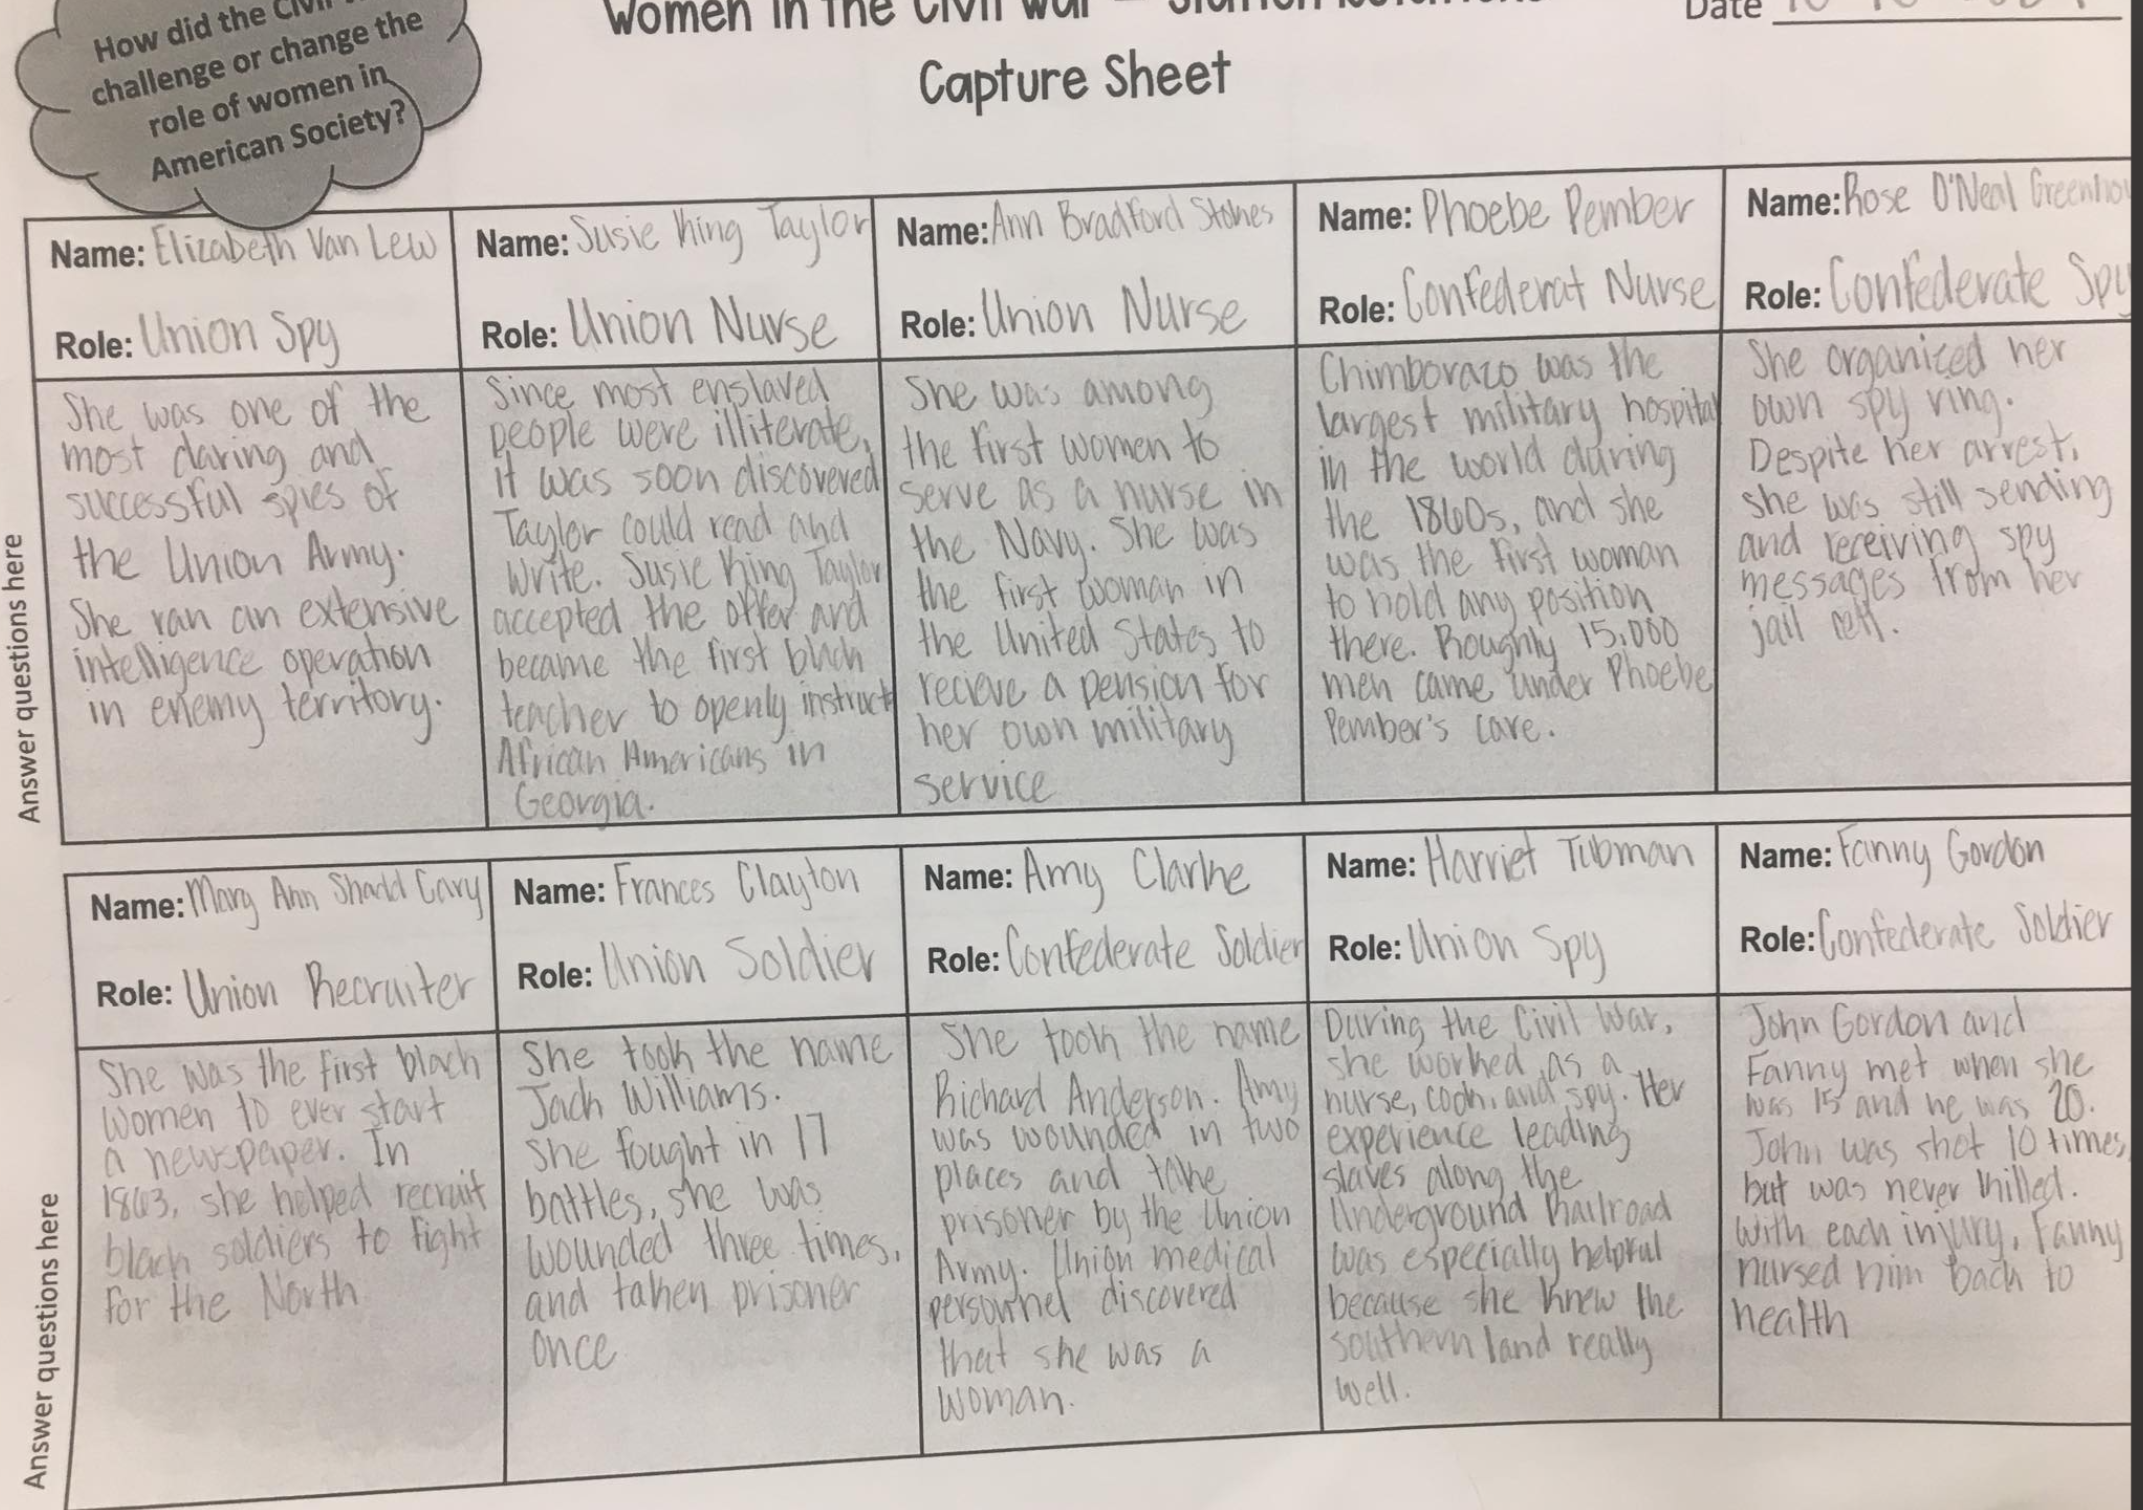 How did the Civil
challenge or change the
role of women in
American Society?
Women in the Civil War – Station Rotations
Capture Sheet
Date
Answer questions here
Name: Elizabeth Van Lew
Role: Union Spy
She was one of the
most daring and
successful spies of
the Union Army.
She ran an extensive
intelligence operation
in enemy territory.
Name: Susie King Taylor
Role: Union Nurse
Since most enslaved
people were illiterate,
it was soon discovered
Taylor could read and
write. Susie King Taylor
accepted the offer and
became the first black
teacher to openly instruct
African Americans in
Georgia.
Name: Ann Bradford Stokes
Role: Union Nurse
She was among
the first women to
serve as a nurse in
the Navy. She was
the first woman in
the United States to
recieve a pension for
her own military
service
Name: Phoebe Pember
Role: Confederat Nurse
Chimborazo was the
largest military hospital
in the world during
the 1860s, and she
was the first woman
to hold any position
there. Roughly 15,000
men came under Phoebe
Pember's care.
Name: Rose O'Neal Greenhou
Role: Confederate Spy
She organized her
own spy ring.
Despite her arrest,
she was still sending
and receiving spy
messages from her
jail cell.
Answer questions here
Name: Mary Ann Shadd Cary
Role: Union Recruiter
She was the first black
women to ever start
a newspaper. In
1863, she helped recruit
black soldiers to fight
for the North
Name: Frances Clayton
Role: Union Soldier
She took the name
Jack Williams.
She fought in 17
battles, she was
wounded three times,
and taken prisoner
once
Name: Amy Clarke
Role: Confederate Soldier
She took the name
Richard Anderson. Amy
was wounded in two
places and take
prisoner by the Union
Army. Union medical
personnel discovered
that she was a
woman.
Name: Harriet Tubman
Role: Union Spy
During the Civil War,
she worked as a
nurse, cook, and spy. Her
experience leading
slaves along the
Underground Railroad
was especially helpful
because she knew the
southern land really
well.
Name: Fanny Gordon
Role: Confederate Soldier
John Gordon and
Fanny met when she
was 15 and he was 20.
John was shot 10 times,
but was never killed.
With each injury, Fanny
nursed him back to
health